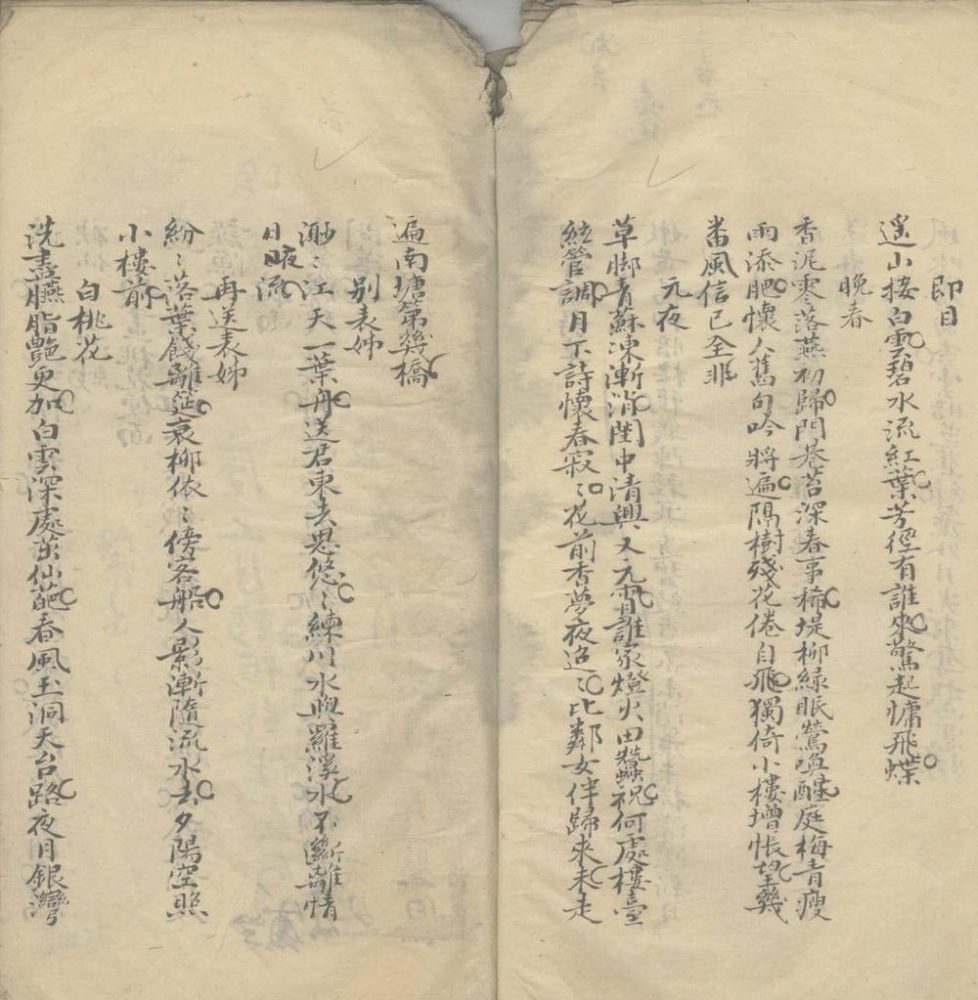 即目
遙山接白雲碧水流紅葉芳徑有誰來驚起慵飛蝶
晚春
香泥零落燕初歸門巷苔深春事稀堤柳綠眠鶯喚醒庭梅青瘦
雨添肥懷人舊句吟將遍隔樹殘花倦自飛獨倚小樓增悵望幾
番風信已全非
元夜
草脚青蘇凍漸消閨中清興又元宵誰家燈火田蠶祝何處樓臺
絃管調月下詩懷春寂〻花前香夢夜迢〻比鄰女伴歸來未走
遍南塘第幾橋
別表姊
渺〻江天一葉舟送君東去思悠〻練川水與羅溪水不斷離情
日夜流
再送表姊
紛〻落葉餞離筵衰柳依〻傍客船人影漸隨流水去夕陽空照
小樓前
白桃花
洗盡臙脂艷更加白雲深處茁仙葩春風玉洞天台路夜月銀灣